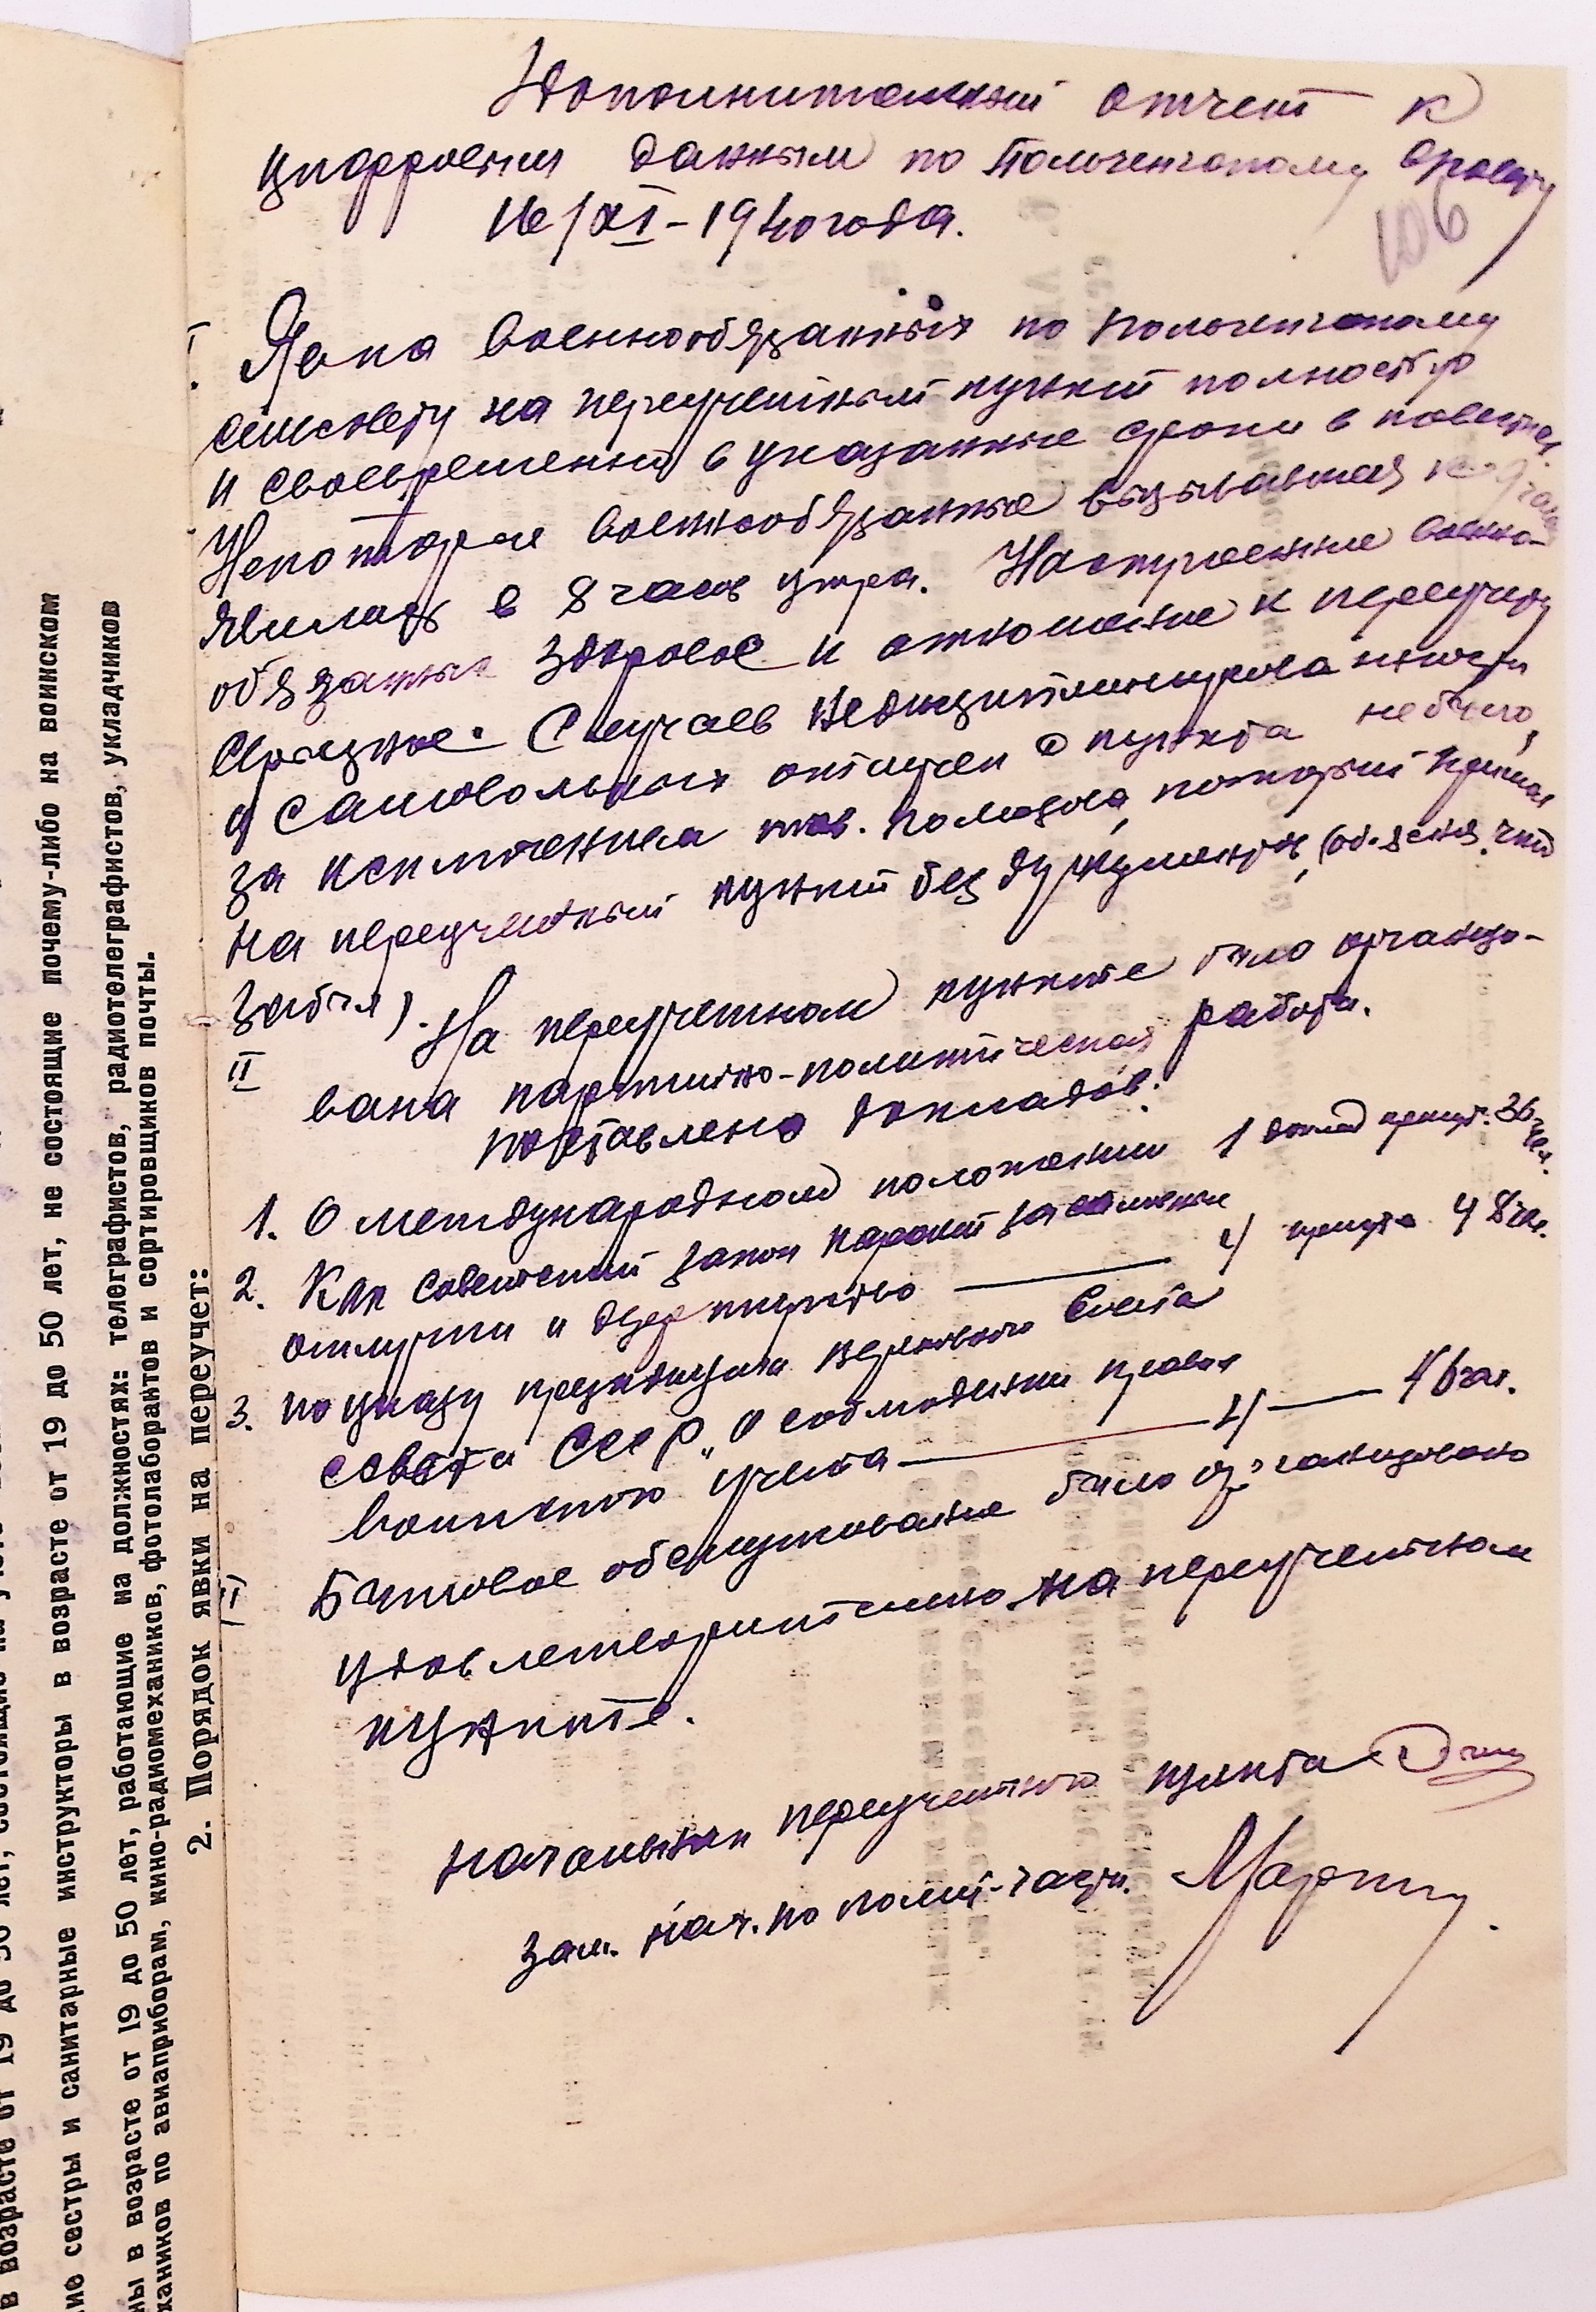 Дополнительный отчет к
цифровым данным по
16/XI-1940 года.
106
I. Явка военнообязанных по
сельсовету на переучетный пункт полностью
и своевременно в указанные сроки в повестках.
Некоторые военнообязанные вызывавшиеся
явились в 8 часов утра. Настроение военно-
обязанных здоровое и отношение к переучету
серьезное. Случаев недисциплинированности
и самовольных отлучек с пункта не было,
за исключением тов. который пришел
на переучетный пункт без документов, (объясняя что
забыл).
II На переучетном пункте было организо-
вана партийно-политическая работа.
поставлено докладов:
1. О международном положении 1 доклад присут. 36 чел.
2. Как советский закон карает за
отлучки и дезертирство —— 4 присутс. 48 чел.
3. по указу президиума верховного Совета
СССР „О соблюдении правил
воинского учета —— —— 46 чел.
III Бытовое обслуживание было организовано
удовлетворительно на переучетном
пункте.
начальник переучетного пункта
зам. нач. по полит-части.
не состоящие почему-либо на воинском
сестры и санитарные инструкторы в возрасте от 19 до 50 лет,
в возрасте от 19 до 50 лет, работающие на должностях: телеграфистов, радиотелеграфистов, укладчиков
по авиаприборам, кино-радиомехаников, фотолаборантов и сортировщиков почты.
2. Порядок явки на переучет: